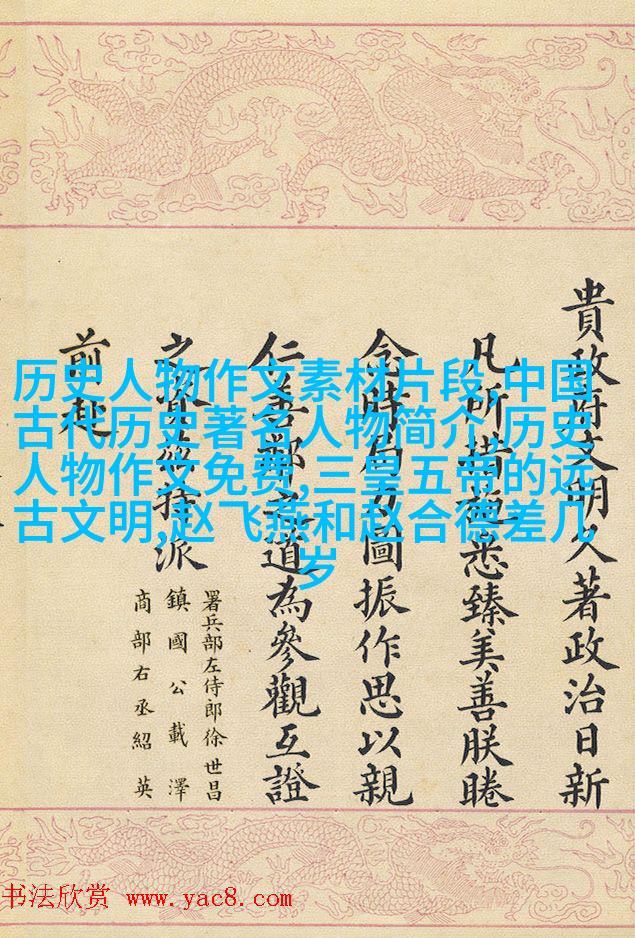 历史人物作文素材片段,中国
古代历史著名人物简介,历史
人物作文免费,三皇五帝的远
古文明,赵飞燕和赵合德差几
岁
貴政府文明久著政治日新
凡所措施悉臻美善朕睠
念時局力圖振作思以親
仁善鄰之道為參觀互證
之資茲特派
署兵部左侍郎徐世昌
鎮國公載澤
商部右丞紹英
前赴
书法欣赏 www.yac8.com